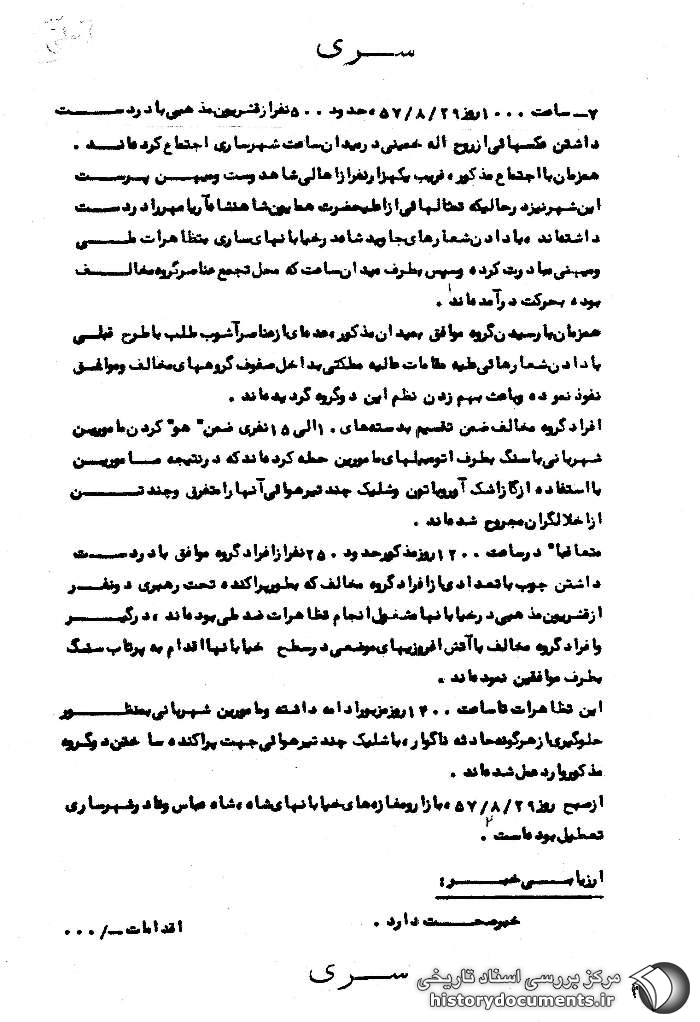 سری
۷ــ ساعت ۱۰۰۰ روز ۵۷/۸/۲۹، حدود ۵۰۰ نفر از قشریون مذهبی با در دست
داشتن عکسهائی از روح اله خمینی در میدان ساعت شهر ساری اجتماع کرده‌اند.
همزمان با اجتماع مذکور، قریب یکهزار نفر از اهالی شاهدوست و میهن پرست
این شهر نیز در حالیکه تمثالهائی از اعلیحضرت همایون شاهنشاه آریامهر را در دست
داشته‌اند، با دادن شعارهای جاوید شاه در خیابانهای ساری بتظاهرات ملی
و میهنی مبادرت کرده و سپس بطرف میدان ساعت که محل تجمع عناصر گروه مخالف
بوده بحرکت در آمده‌اند.
همزمان با رسیدن گروه موافق بمیدان مذکور، عده‌ای از عناصر آشوب طلب با طرح قبلی
با دادن شعارهائی علیه مقامات عالیه مملکتی بداخل صفوف گروههای مخالف و موافق
نفوذ نموده و باعث بهم زدن نظم این دو گروه گردیده‌اند.
افراد گروه مخالف ضمن تقسیم بدسته‌های ۱۰ الی ۱۵ نفری ضمن "هو" کردن مامورین
شهربانی با سنگ بطرف اتومبیلهای مامورین حمله کرده‌اند که در نتیجه مامورین
با استفاده از گاز اشک آور و باتون و شلیک چند تیر هوائی آنها را متفرق و چند تن
از اخلالگران مجروح شده‌اند.
متعاقبا" در ساعت ۱۲۰۰ روز مذکور حدود ۲۵۰ نفر از افراد گروه موافق با در دست
داشتن چوب با تعدادی از افراد گروه مخالف که بطور پراکنده تحت رهبری دو نفر
از قشریون مذهبی در خیابانها مشغول انجام تظاهرات ضد ملی بوده‌اند، درگیر
و افراد گروه مخالف با آتش افروزیهای موضعی در سطح خیابانها اقدام به پرتاب سنگ
بطرف موافقین نموده‌اند.
این تظاهرات تا ساعت ۱۴۰۰ روز مزبور ادامه داشته و مامورین شهربانی بمنظور
جلوگیری از هرگونه حادثه ناگوار، با شلیک چند تیر هوائی جهت پراکنده ساختن دو گروه
مذکور وارد عمل شده‌اند.
از صبح روز ۵۷/۸/۲۹، بازار و مغازه‌های خیابانهای شاه، شاه عباس و نادر شهر ساری
تعطیل بوده است.
ارزیابی خبر:
خبر صحت دارد.
اقدامات ــ/۰۰۰
سری
مرکز بررسی اسناد تاریخی
historydocuments.ir